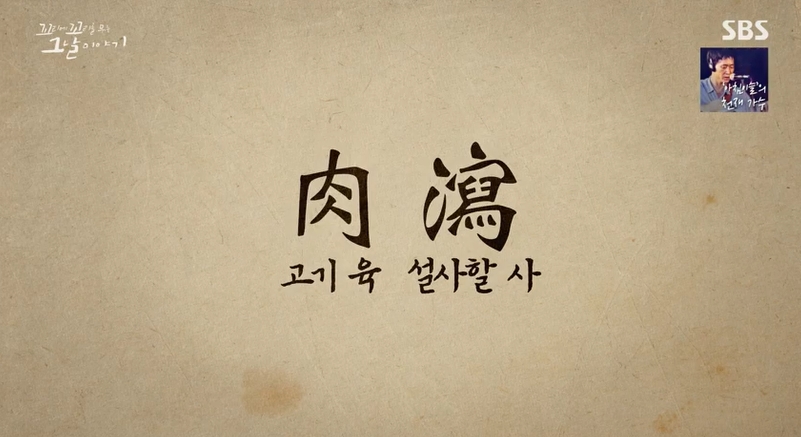 꼬리에 꼬리를 무는
그날 이야기
SBS
'아침이슬'의
천재 가수
肉 瀉
고기 육 설사할 사